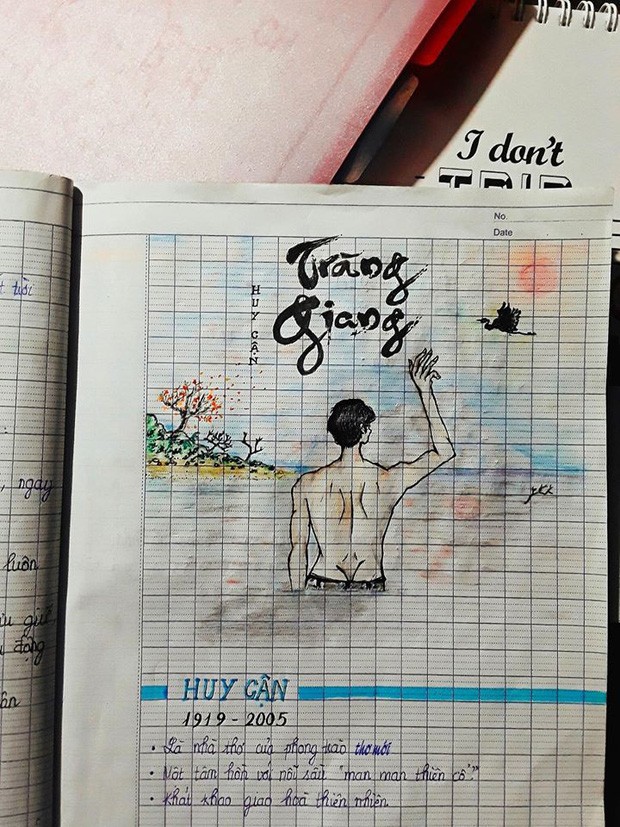 I don't
TRIP
No.
Date
Tràng
Giang
HUY CẬN
, ngày
luôn
giữ
động
HUY CẬN
1919 - 2005
• Là nhà thơ của phong trào thơ mới
• Một tâm hồn với nỗi sầu "man man thiên cổ"
• Khát khao giao hoà thiên nhiên